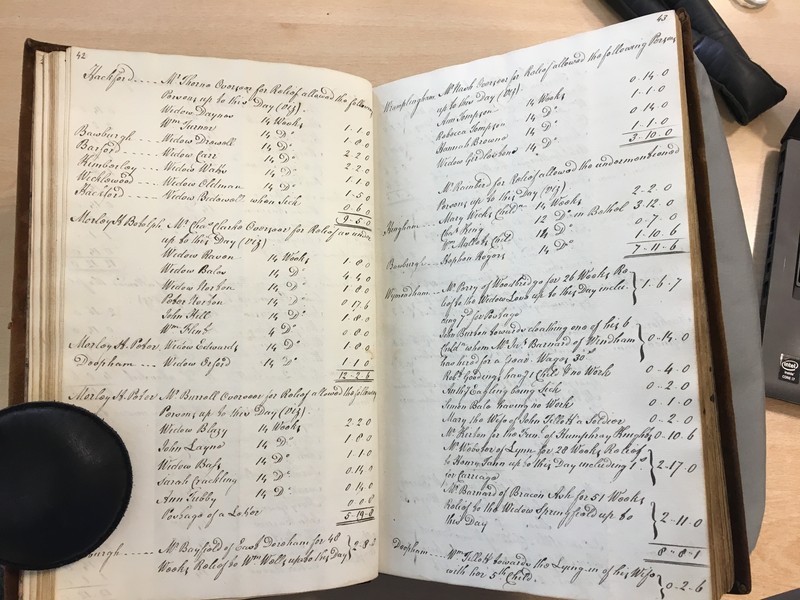 42
Hackford ---- Mr Thorne Overseer for Relief allowed the following
Persons up to this Day (Viz).
Widow Daynes 14 Weeks 1 - 1 - 0
Wm Turner 14 Do 1 - 8 - 0
Bawburgh -- Widow 14 Do 2 - 2 - 0
Barford --- Widow Carr 14 Do 2 - 2 - 0
Kimberley -- Widow 14 Do 1 - 1 - 0
Wicklewood -- Widow Oldman 14 Do 1 - 5 - 0
Hackford -- Widow when Sick 0 - 6 - 0
9 - 5 - 0
Morley St Botolph Mr Chas Clarke Overseer for Relief as under
up to this Day (Viz)
Widow Raven 14 Weeks 1 - 8 - 0
Widow Bales 14 Do 4 - 4 - 0
Widow Norton 14 Do 1 - 8 - 0
Peter Norton 14 Do 0 - 17 - 6
John Hill 14 Do 1 - 8 - 0
Wm 4 Do 0 - 8 - 0
Morley St Peter Widow Edwards 14 Do 1 - 8 - 0
Deopham -- Widow Orford 14 Do 1 - 1 - 0
12 - 2 - 6
Morley St Peter Mr Burroll Overseer for Relief allowed the following
Persons up to this Day (Viz)
Widow Blazy 14 Weeks 2 - 2 - 0
John Layne 14 Do 1 - 8 - 0
Widow 14 Do 1 - 1 - 0
Sarah Crackling 14 Do 0 - 14 - 0
Ann Kibby 14 Do 0 - 14 - 0
Postage of a Letter
5 - 19 - 8
burgh ---- Mr Bayfield of East Dereham for 48
Weeks Relief to Wm Wells up to this Day
43
Wramplingham Mr Overseer for Relief allowed the following Persons
up to this Day (Viz)
Ann Tompson 14 Weeks 0 - 14 - 0
Rebecca Tompson 14 Do 1 - 1 - 0
Hannah Browne 14 Do 0 - 14 - 0
Widow 14 Do 1 - 1 - 0
3 - 10 - 0
Mr Ranter for Relief allowed the undermentioned
Persons up to this Day (Viz)
Hingham -- Mary Wicks Childn 14 Weeks 2 - 2 - 0
King 12 Do in Bethel 3 - 12 - 0
Wm Child 14 Do 0 - 7 - 0
Bawburgh -- Stephen Rogers 14 Do 1 - 10 - 6
7 - 11 - 6
Wymondham -- Mr Perry of Woodbridge for 26 Weeks Re-
lief to the Widow Love up to this Day inclu- 1 - 6 - 7
ding 7d for Postage
John Burton towards cloathing one of his 6
Childn whom Mr Jas Barnard of Windham 0 - 14 - 0
has hired for a Year Wages 30s
Robt Gooding having 7 Childn & no Work 0 - 4 - 0
Anthy Eagling being Sick 0 - 2 - 0
Simon Bale having no Work 0 - 1 - 0
Mary the Wife of John Tillott a Soldier 0 - 2 - 0
Mr Kerton for the Funl of Humphray Knights 0 - 10 - 6
Mr Webster of Lynn for 28 Weeks Relief
to Henry Tann up to this Day including 1s 2 - 17 - 0
for Carriage
Mr Barnard of Bracon Ash for 51 Weeks
Relief to the Widow Springfield up to 2 - 11 - 0
this Day
8 - 8 - 1
Deopham -- Wm Tillott towards the Lying-in of his Wife
with her 5th Child. 0 - 2 - 6
intel
CORE i7